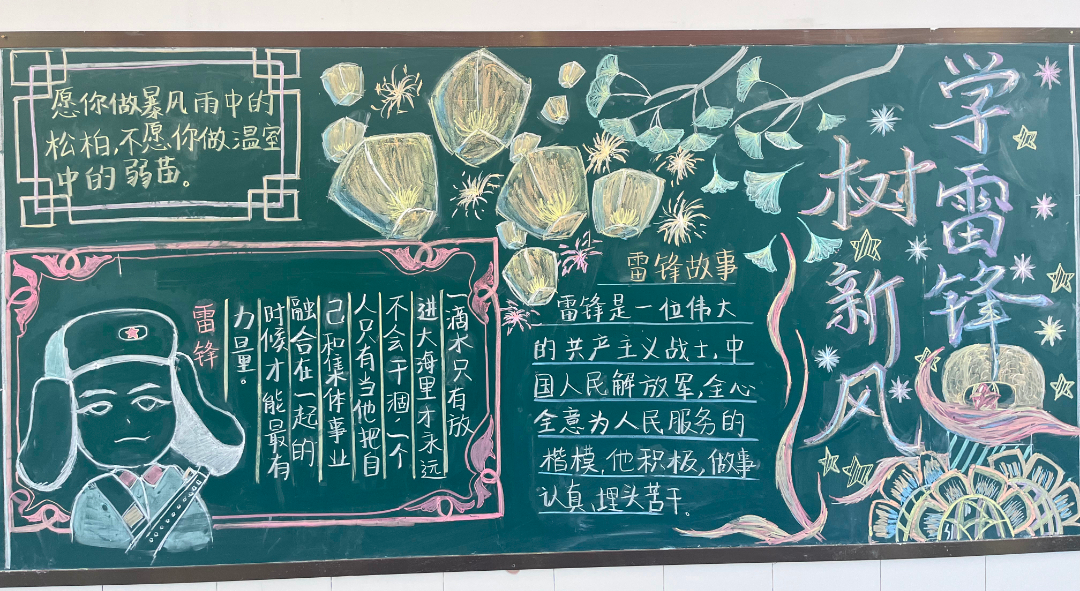 愿你做暴风雨中的
松柏,不愿你做温室
中的弱苗。
学雷锋
树新风
一滴水只有放
进大海里才永远
不会干涸,一个
人只有当他把自
己和集体事业
融合在一起的
时候才能最有
力量。
雷锋
雷锋故事
雷锋是一位伟大
的共产主义战士,中
国人民解放军,全心
全意为人民服务的
楷模,他积极,做事
认真,埋头苦干。